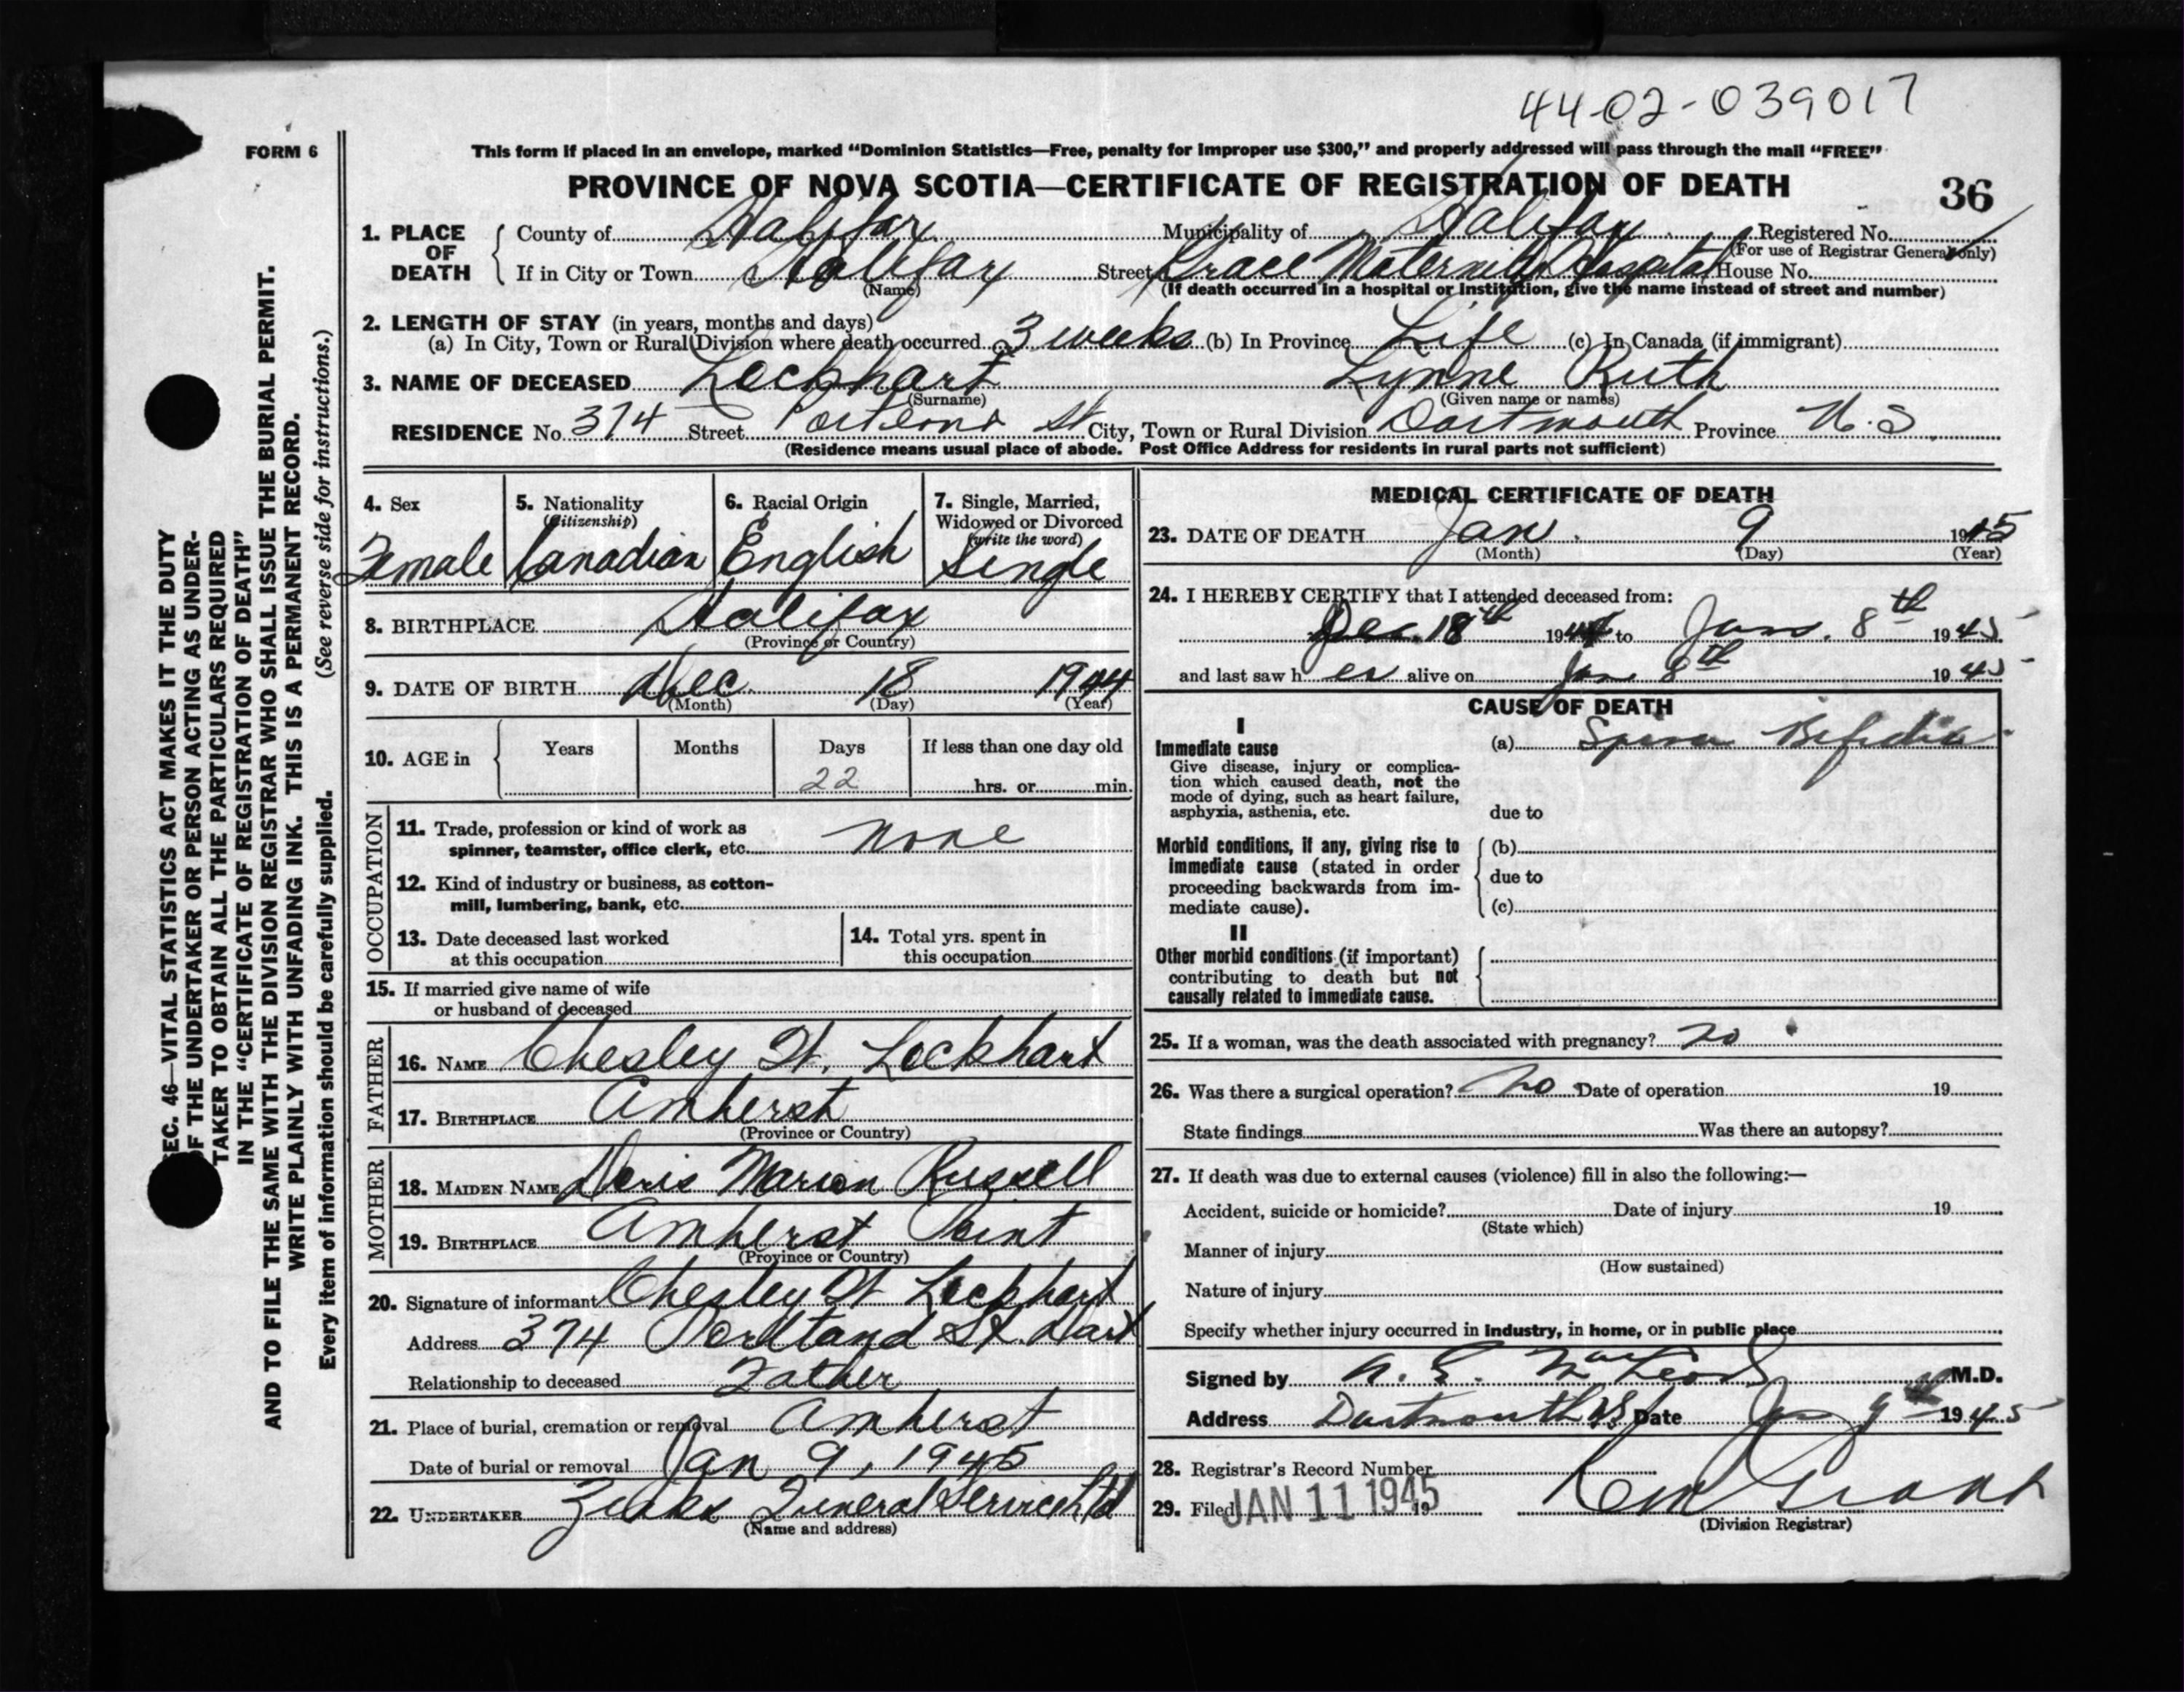 44-02-039017
FORM 6
This form if placed in an envelope, marked "Dominion Statistics—Free, penalty for improper use $300," and properly addressed will pass through the mail "FREE"
PROVINCE OF NOVA SCOTIA—CERTIFICATE OF REGISTRATION OF DEATH
36
1. PLACE OF DEATH
County of Halifax Municipality of Halifax Registered No.
(For use of Registrar General only)
If in City or Town Halifax Street Grace Maternity Hospital House No.
(Name) (If death occurred in a hospital or institution, give the name instead of street and number)
2. LENGTH OF STAY (in years, months and days)
(a) In City, Town or Rural Division where death occurred 3 weeks (b) In Province Life (c) In Canada (if immigrant)
3. NAME OF DECEASED Lockhart Lynne Ruth
(Surname) (Given name or names)
RESIDENCE No. 374 Street Portland St City, Town or Rural Division Dartmouth Province N.S.
(Residence means usual place of abode. Post Office Address for residents in rural parts not sufficient)
4. Sex
Female
5. Nationality
(Citizenship)
Canadian
6. Racial Origin
English
7. Single, Married,
Widowed or Divorced
(write the word)
Single
8. BIRTHPLACE Halifax
(Province or Country)
9. DATE OF BIRTH Dec. 18 1944
(Month) (Day) (Year)
10. AGE in Years Months Days If less than one day old
22 hrs. or min.
OCCUPATION
11. Trade, profession or kind of work as
spinner, teamster, office clerk, etc. none
12. Kind of industry or business, as cotton-
mill, lumbering, bank, etc.
13. Date deceased last worked
at this occupation
14. Total yrs. spent in
this occupation
15. If married give name of wife
or husband of deceased
FATHER
16. NAME Chesley St. Lockhart
17. BIRTHPLACE Amherst
(Province or Country)
MOTHER
18. MAIDEN NAME Doris Marion Russell
19. BIRTHPLACE Amherst Point
(Province or Country)
20. Signature of informant Chesley St Lockhart
Address 374 Portland St. Dart
Relationship to deceased Father
21. Place of burial, cremation or removal Amherst
Date of burial or removal Jan 9, 1945
22. UNDERTAKER Zinks Funeral Service Ltd
(Name and address)
MEDICAL CERTIFICATE OF DEATH
23. DATE OF DEATH Jan. 9 1945
(Month) (Day) (Year)
24. I HEREBY CERTIFY that I attended deceased from:
Dec. 18th 1944 to Jan. 8th 1945
and last saw her alive on Jan 8th 1945
CAUSE OF DEATH
I
Immediate cause
Give disease, injury or complica-
tion which caused death, not the
mode of dying, such as heart failure,
asphyxia, asthenia, etc.
(a) Spina Bifidia
due to
Morbid conditions, if any, giving rise to
immediate cause (stated in order
proceeding backwards from im-
mediate cause).
(b)
due to
(c)
II
Other morbid conditions (if important)
contributing to death but not
causally related to immediate cause.
25. If a woman, was the death associated with pregnancy? no
26. Was there a surgical operation? no Date of operation 19
State findings Was there an autopsy?
27. If death was due to external causes (violence) fill in also the following:—
Accident, suicide or homicide? Date of injury 19
(State which)
Manner of injury
(How sustained)
Nature of injury
Specify whether injury occurred in industry, in home, or in public place
Signed by A. G. MacLeod M.D.
Address Dartmouth NS Date Jan 9th 1945
28. Registrar's Record Number
29. Filed JAN 11 1945 19
(Division Registrar)
SEC. 46—VITAL STATISTICS ACT MAKES IT THE DUTY
OF THE UNDERTAKER OR PERSON ACTING AS UNDER-
TAKER TO OBTAIN ALL THE PARTICULARS REQUIRED
IN THE "CERTIFICATE OF REGISTRATION OF DEATH"
AND TO FILE THE SAME WITH THE DIVISION REGISTRAR WHO SHALL ISSUE THE BURIAL PERMIT.
WRITE PLAINLY WITH UNFADING INK. THIS IS A PERMANENT RECORD.
(See reverse side for instructions.)
Every item of information should be carefully supplied.